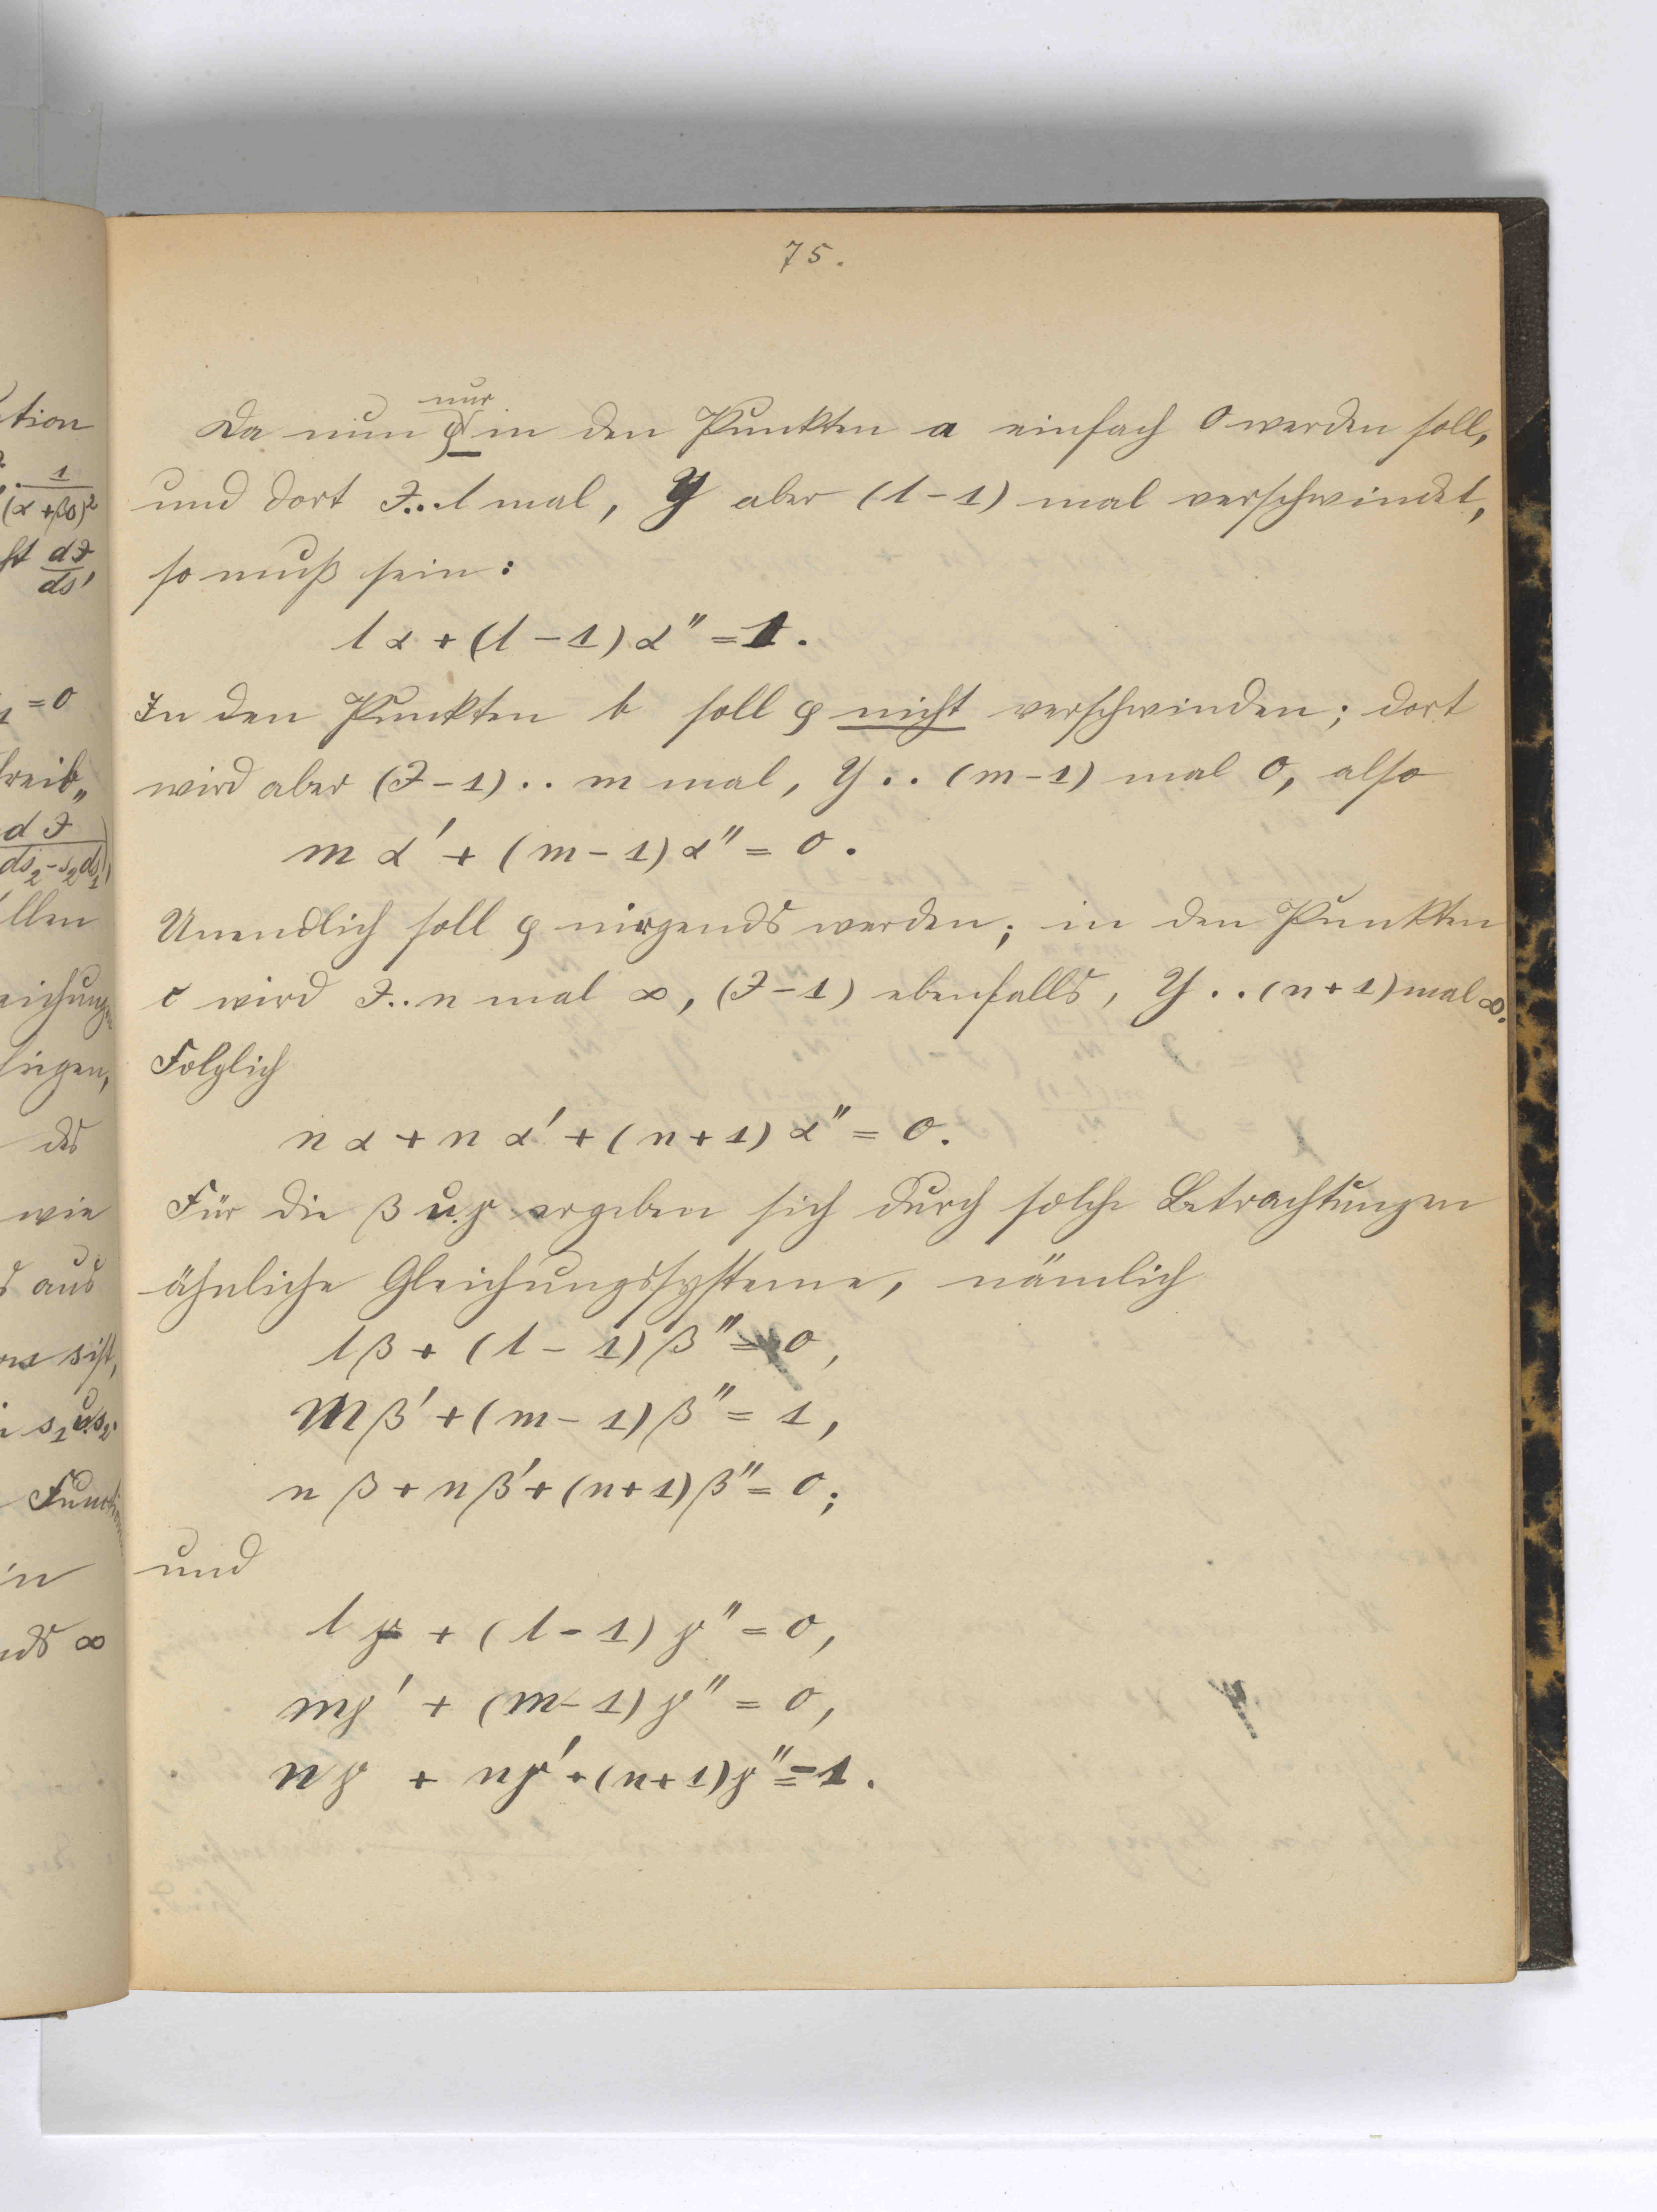 75.
nur
Da nun φ in den Punkten a einfach 0 werden soll,
und dort J..l mal, Y aber (l-1) mal verschwindet,
so muß sein:
lα + (l-1)α'' = 1.
In den Punkten b soll φ nicht verschwinden; dort
wird aber (J-1).. m mal, Y.. (m-1) mal 0, also
mα' + (m-1)α'' = 0.
Unendlich soll φ nirgends werden; in den Punkten
c wird J..n mal ∞, (J-1) ebenfalls, Y..(n+1) mal ∞.
Folglich
nα + nα' + (n+1)α'' = 0.
Für die β u. γ ergeben sich durch solche Betrachtungen
ähnliche Gleichungssysteme, nämlich
lβ + (l-1)β'' = 0,
mβ' + (m-1)β'' = 1,
nβ + nβ' + (n+1)β'' = 0;
und
lγ + (l-1)γ'' = 0,
mγ' + (m-1)γ'' = 0,
nγ + nγ' + (n+1)γ'' = -1.